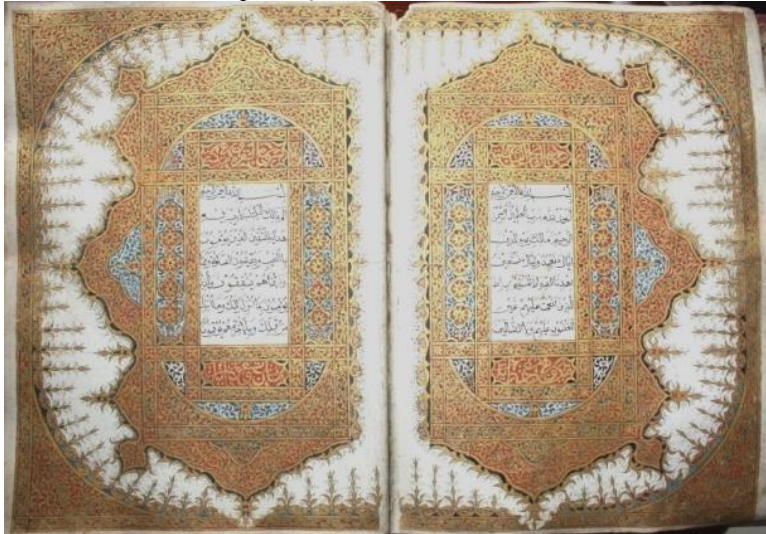 بسم الله الرحمن الرحيم
الحمد لله رب العلمين الرحمن
الرحيم مالك يوم الدين
اياك نعبد واياك نستعين
اهدنا الصراط المستقيم صراط
الذين انعمت عليهم غير
المغضوب عليهم ولا الضالين
بسم الله الرحمن الرحيم
الم ذلك الكتاب لا ريب فيه
هدى للمتقين الذين يؤمنون
بالغيب ويقيمون الصلوة ومما
رزقناهم ينفقون والذين
يؤمنون بما انزل اليك وما انزل
من قبلك وبالاخرة هم يوقنون